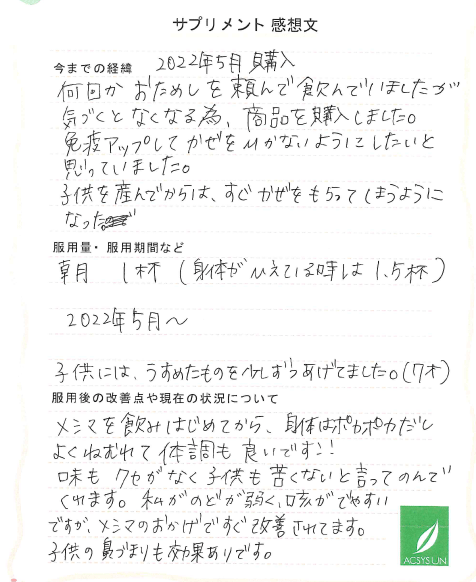 サプリメント 感想文
今までの経緯 2022年5月 購入
何回か おためしを頼んで飲んでいましたが
気づくとなくなる為、商品を購入しました。
免疫アップしてかぜをひかないようにしたいと
思っていました。
子供を産んでからは、すぐかぜをもらってしまうように
なった
服用量・服用期間など
朝 1杯 (身体がひえている時は1.5杯)
2022年5月〜
子供には、うすめたものを少しずつあげてました。(7才)
服用後の改善点や現在の状況について
メシマを飲みはじめてから、身体はポカポカだし
よくねむれて体調も良いです!!
味もクセがなく子供も苦くないと言ってのんで
くれます。私がのどが弱く、咳がでやすい
ですが、メシマのおかげですぐ改善されてます。
子供の鼻づまりも効果ありです。
ACSYSUN